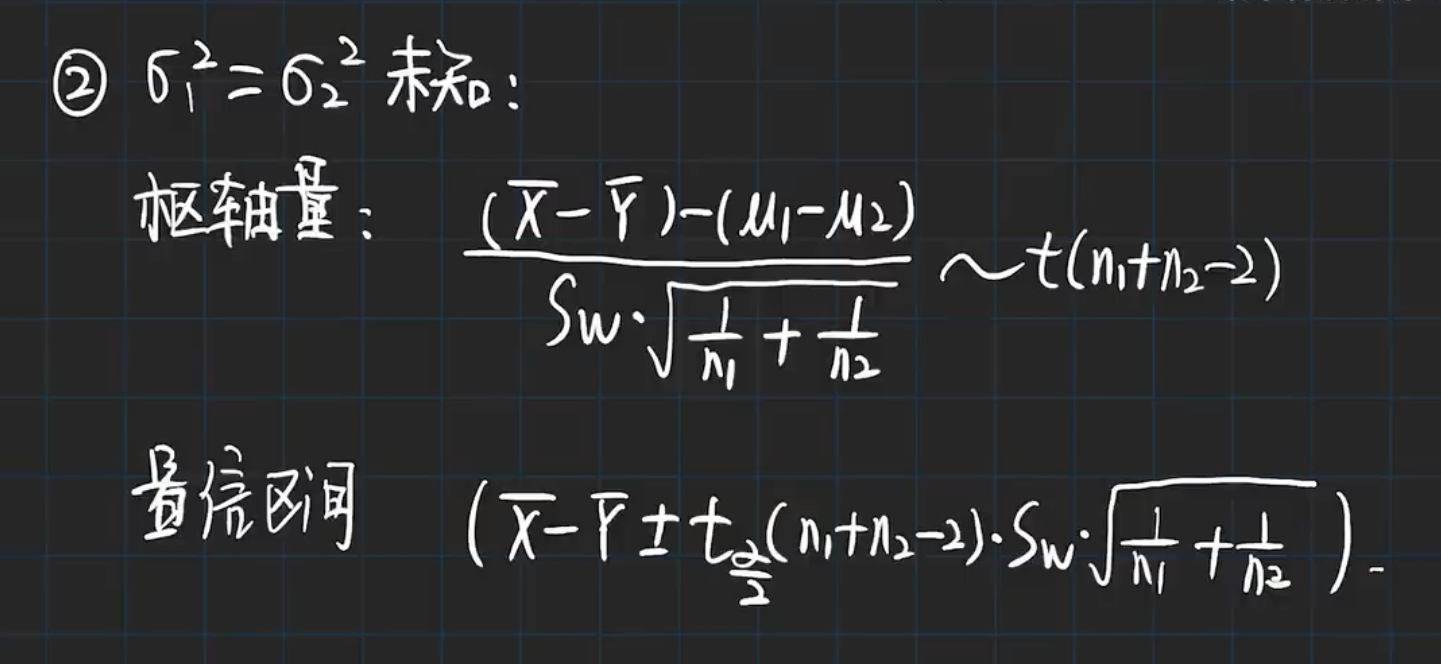 ② σ₁² = σ₂² 未知:
枢轴量: ((X̄ − Ȳ) − (μ₁ − μ₂)) / (Sw·√(1/n₁ + 1/n₂)) ~ t(n₁+n₂−2)
置信区间 (X̄ − Ȳ ± t_{α/2}(n₁+n₂−2)·Sw·√(1/n₁ + 1/n₂)).